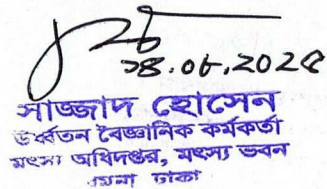 ২৪.০৮.২০২৫
সাজ্জাদ হোসেন
উর্ধ্বতন বৈজ্ঞানিক কর্মকর্তা
মৎস্য অধিদপ্তর, মৎস্য ভবন
ঢাকা